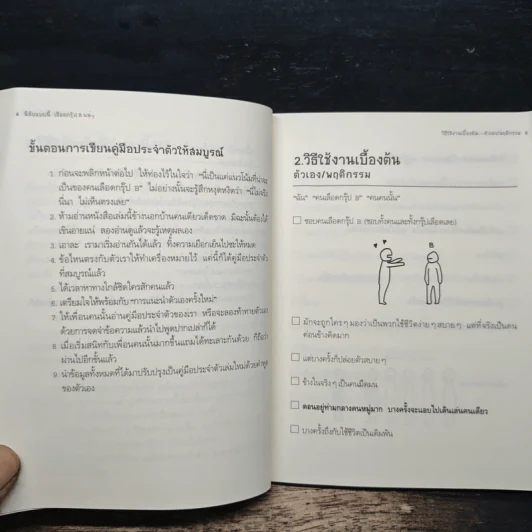 ขั้นตอนการเขียนคู่มือประจำตัวให้สมบูรณ์
1. ก่อนจะพลิกหน้าต่อไป ให้ท่องไว้ในใจว่า "นี่เป็นแค่แนวโน้มที่น่าจะ
เป็นของคนเลือดกรุ๊ป B" ไม่อย่างนั้นจะรู้สึกหงุดหงิดว่า "นี่ไม่จริง
นี่นา ไม่เห็นตรงเลย"
2. ห้ามอ่านหนังสือเล่มนี้ข้างนอกบ้านคนเดียวเด็ดขาด มิฉะนั้นต้องได้
เขินอายแน่ ลองอ่านดูแล้วจะรู้เหตุผลเอง
3. เอาละ เรามาเริ่มอ่านกันได้แล้ว ทิ้งความเยือกเย็นไปซะให้หมด
4. ข้อไหนตรงกับตัวเราให้ทำเครื่องหมายไว้ แค่นี้ก็ได้คู่มือประจำตัว
ที่สมบูรณ์แล้ว
5. ได้เวลาหาทางใกล้ชิดใครสักคนแล้ว
6. เตรียมใจให้พร้อมกับ "การแนะนำตัวเองครั้งใหม่"
7. ให้เพื่อนคนนั้นอ่านคู่มือประจำตัวของเรา หรือจะลองท้าทายตัวเอง
ด้วยการจดจำข้อความแล้วนำไปพูดปากเปล่าก็ได้
8. เมื่อเริ่มสนิทกับเพื่อนคนนั้นมากขึ้นแถมได้ทะเลาะกันด้วย ก็ถือว่า
ผ่านไปอีกขั้นแล้ว
9. นำข้อมูลทั้งหมดที่ได้มาปรับปรุงเป็นคู่มือประจำตัวเล่มใหม่ด้วยคำพูด
ของตัวเอง
2.วิธีใช้งานเบื้องต้น
ตัวเอง/พฤติกรรม
"ฉัน" "คนเลือดกรุ๊ป B" "คนคนนั้น"
ชอบคนเลือดกรุ๊ป B (ชอบทั้งคนและทั้งกรุ๊ปเลือดเลย)
B
มักจะถูกใครๆ มองว่าเป็นพวกใช้ชีวิตง่ายๆ สบายๆ แต่ที่จริงเป็นคน
ค่อนข้างคิดมาก
แต่บางครั้งก็ปล่อยตัวสบายๆ
ข้างในจริงๆ เป็นคนมืดมน
ตอนอยู่ท่ามกลางคนหมู่มาก บางครั้งจะแอบไปเดินเล่นคนเดียว
บางครั้งถึงกับใช้ชีวิตเป็นเดิมพัน